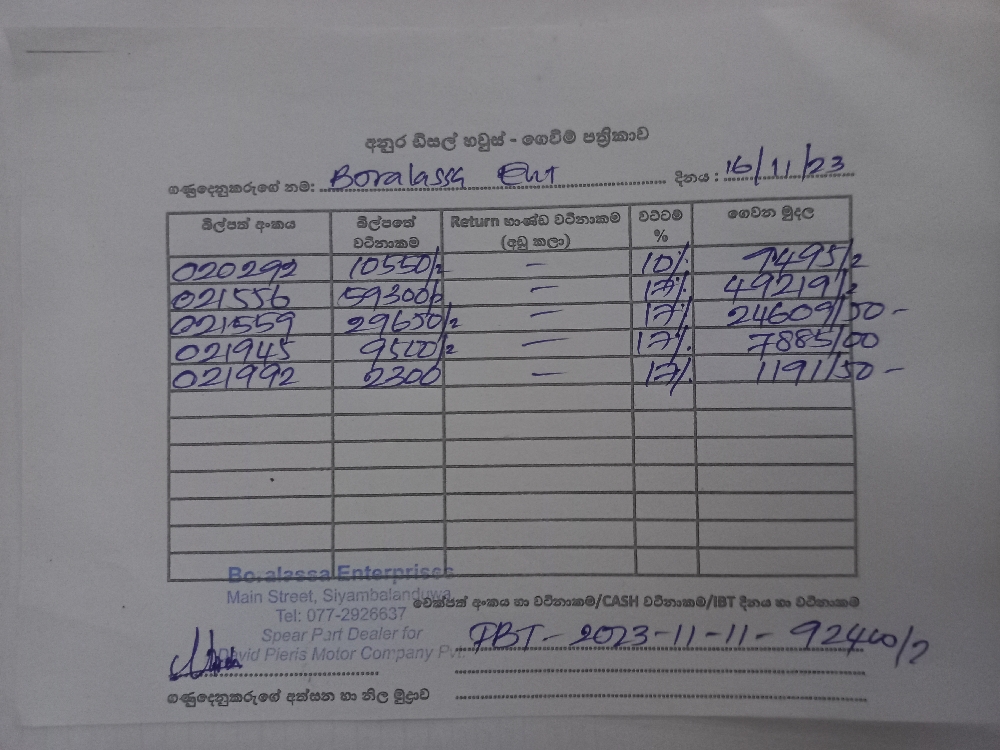 අනුර ඩීසල් හවුස් - ගෙවීම් පත්‍රිකාව
ගණුදෙනුකරුගේ නම: Boralassa Ent දිනය : 16/11/23
බිල්පත් අංකය බිල්පතේ වටිනාකම Return භාණ්ඩ වටිනාකම (අඩු කලා) වට්ටම් % ගෙවන මුදල
020292 10550/2 — 10% 9495/2
021556 59300/2 — 17% 49219/2
021559 29650/2 — 17% 24609/50 -
021945 9500/2 — 17% 7885/00
021992 2300 — 17% 1191/50 -
Boralassa Enterprises
Main Street, Siyambalanduwa
චෙක්පත් අංකය හා වටිනාකම/CASH වටිනාකම/IBT දිනය හා වටිනාකම
Tel: 077-2926637
Spear Part Dealer for
PBT - 2023-11-11 - 92400/2
David Pieris Motor Company Pvt.
ගණුදෙනුකරුගේ අත්සන හා නිල මුද්‍රාව